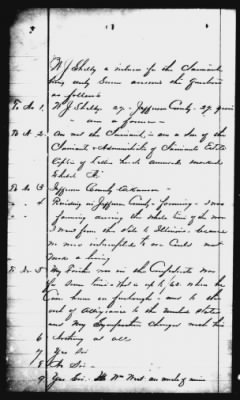 W J Shelby a witness for the Claimant
being duly sworn answers the questions
as follows
To No 1. W J Shelby. 27 - Jefferson County - 27 years
- am a farmer -
To No 2. Am not the Claimant, - am a son of the
Claimant & Administrator of Claimants Estate
Copy of Letters hereto annexed marked
Exhibit
To No 3 Jefferson County Arkansas -
" 4 Residing in Jefferson County - farming - I was
farming during the whole time of the war
I went from the State to Illinois - because
we were interrupted so we could not
make a living
To No 5 My was in the Confederate
for Some time - that is up to 62. when he
home on furlough - and to the
oath of Allegiance to the United States
and My Sympathies changed with him
6 Nothing at all
7 Yes Sir
8 No Sir -
9 Yes Sir. Wm West an uncle of mine